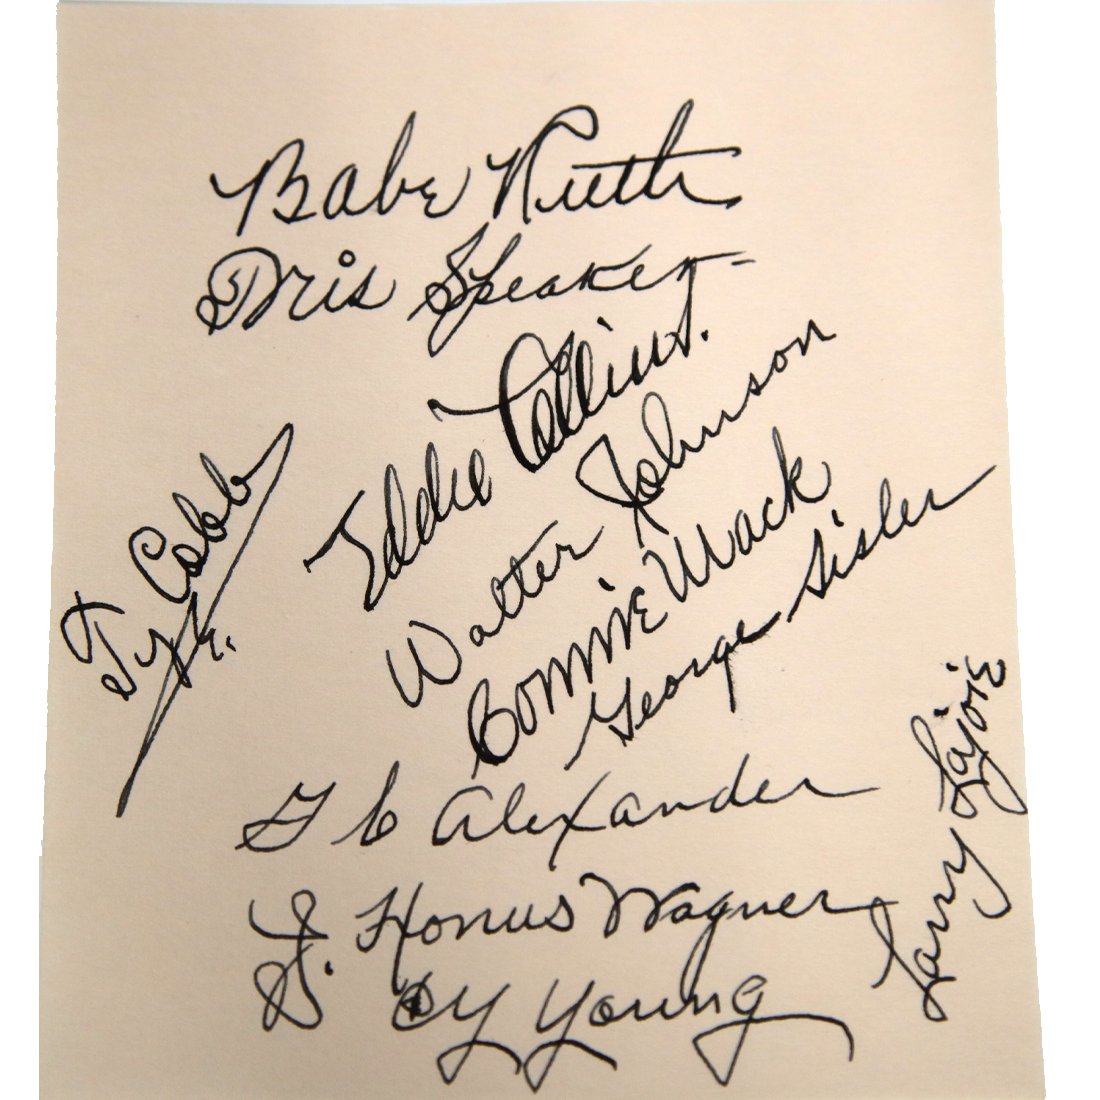 Babe Ruth
Tris Speaker
Eddie Collins.
Walter Johnson
Ty Cobb
Connie Mack
George Sisler
G C Alexander
Larry Lajoie
J. Honus Wagner
Cy Young